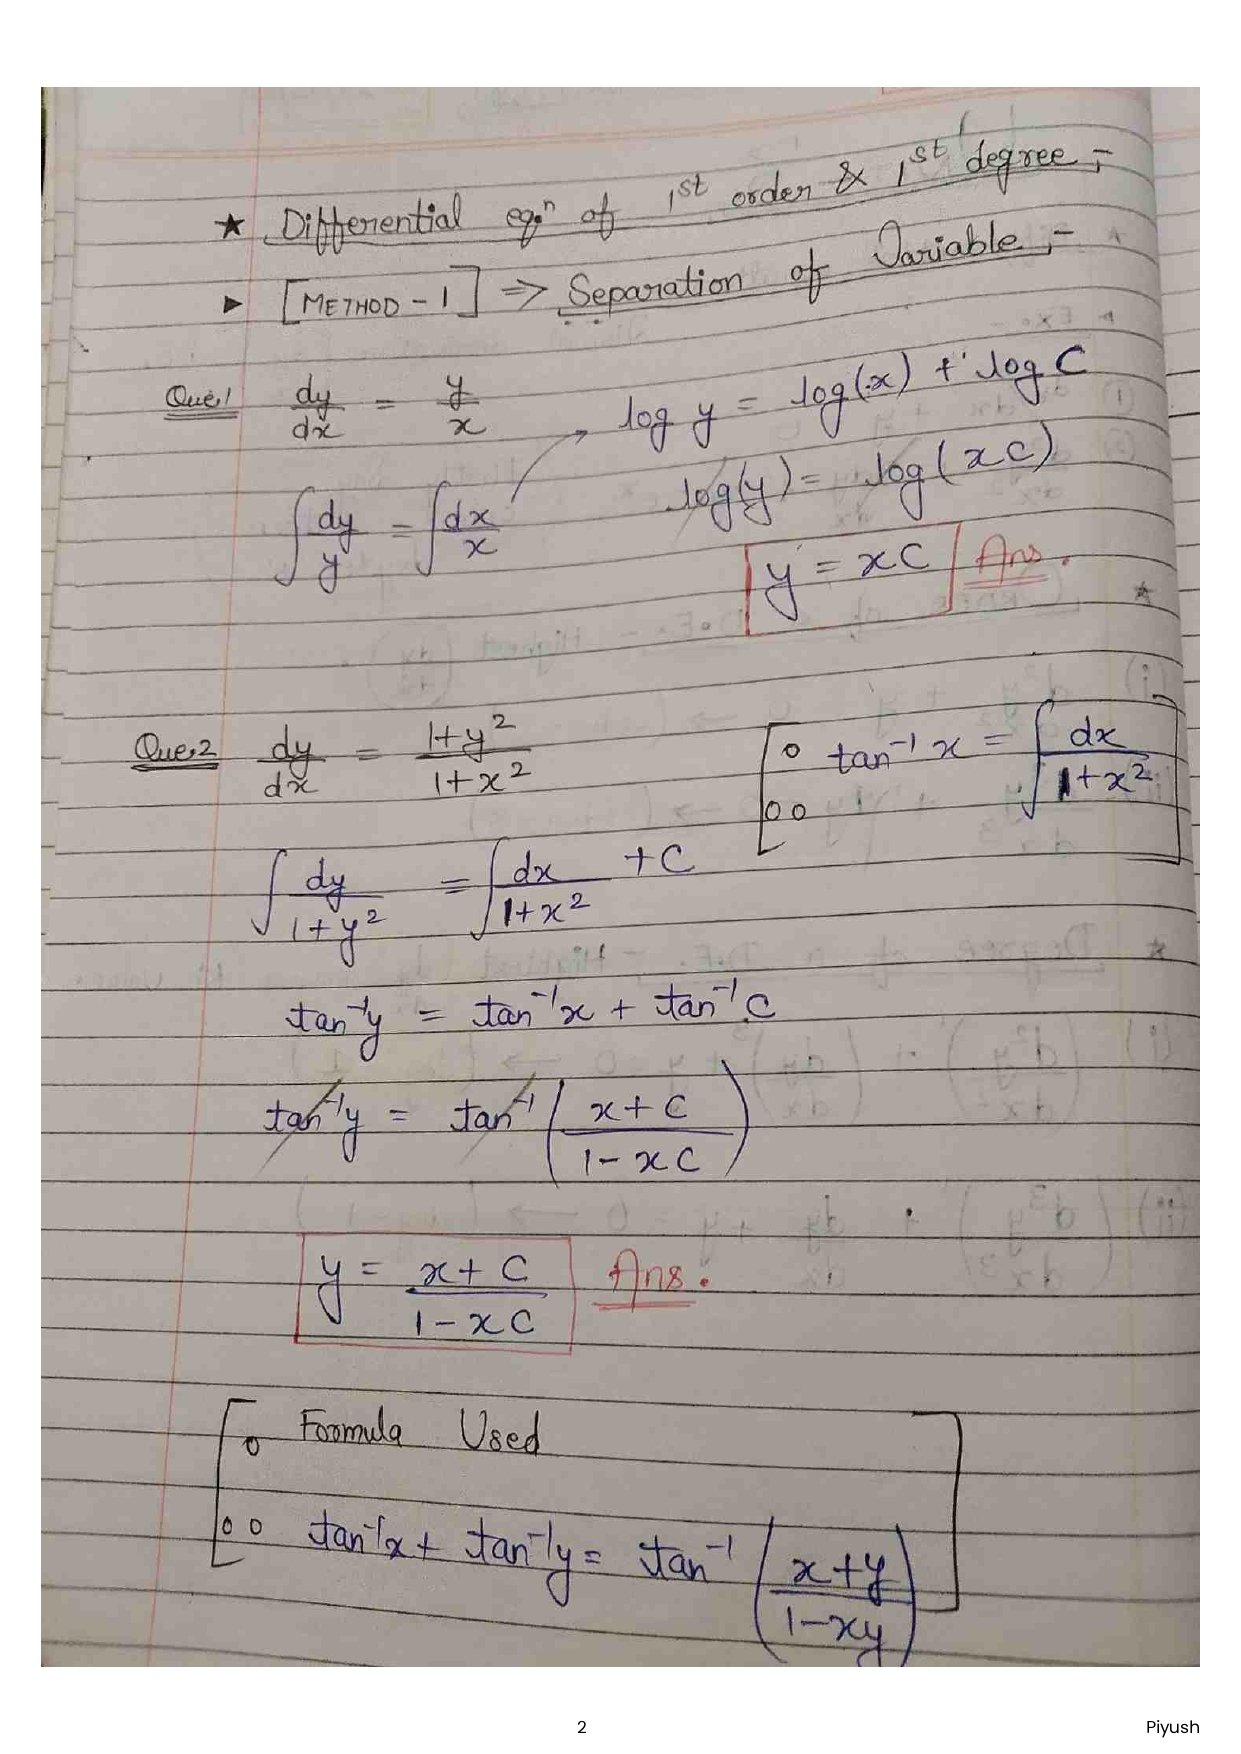 ★ Differential eqⁿ of 1st order & 1st degree :-
▶ [METHOD - 1] ⇒ Separation of Variable :-
Que.1 dy/dx = y/x
∫ dy/y = ∫ dx/x → log y = log(x) + log C
log(y) = log(xC)
y = xC Ans.
Que.2 dy/dx = (1+y²)/(1+x²)
[∴ tan⁻¹ x = ∫ dx/(1+x²)]
∫ dy/(1+y²) = ∫ dx/(1+x²) + C
tan⁻¹y = tan⁻¹x + tan⁻¹C
tan⁻¹y = tan⁻¹((x+C)/(1-xC))
y = (x+C)/(1-xC) Ans.
Formula Used
∴ tan⁻¹x + tan⁻¹y = tan⁻¹((x+y)/(1-xy))
2
Piyush